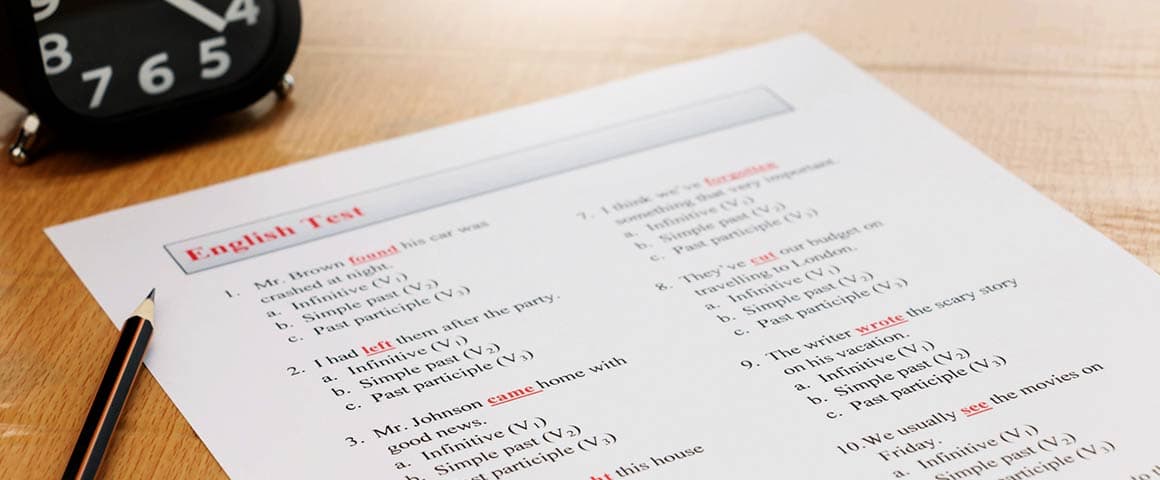 9
8
7
6
5
4
English Test
1. Mr. Brown found his car was
crashed at night.
a. Infinitive (V1)
b. Simple past (V2)
c. Past participle (V3)
2. I had left them after the party.
a. Infinitive (V1)
b. Simple past (V2)
c. Past participle (V3)
3. Mr. Johnson came home with
good news.
a. Infinitive (V1)
b. Simple past (V2)
st participle (V3)
ht this house
7. I think we've forgotten
something that very important.
a. Infinitive (V1)
b. Simple past (V2)
c. Past participle (V3)
8. They've cut our budget on
travelling to London.
a. Infinitive (V1)
b. Simple past (V2)
c. Past participle (V3)
9. The writer wrote the scary story
on his vacation.
a. Infinitive (V1)
b. Simple past (V2)
c. Past participle (V3)
10. We usually see the movies on
Friday.
a. Infinitive (V1)
Simple past (V2)
articiple (V3)